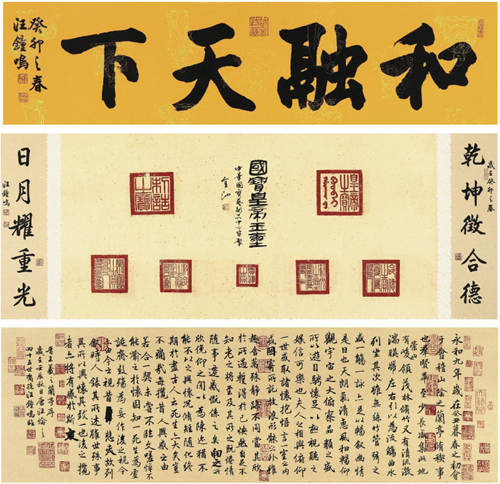 和融天下
癸卯之春
汪鐘鳴
歲在癸卯之春
乾坤徵合德
國寶皇帝玉璽
日月耀重光
汪鐘鳴
永和九年歲在癸丑暮春之初會
于會稽山陰之蘭亭脩稧事
也群賢畢至少長咸集此地
有崇山峻領茂林脩竹又有清流激
湍暎帶左右引以為流觴曲水
列坐其次雖無絲竹管弦之
盛一觴一詠亦足以暢敘幽情
是日也天朗氣清惠風和暢仰
觀宇宙之大俯察品類之盛
所以遊目騁懷足以極視聽之
娛信可樂也夫人之相與俯仰
一世或取諸懷抱悟言一室之內
或因寄所託放浪形骸之外雖
趣舍萬殊靜躁不同當其欣
於所遇暫得於己怏然自足不
知老之將至及其所之既惓情
隨事遷感慨係之矣向之所
欣俛仰之間以為陳迹猶不
能不以之興懷況脩短隨化終
期於盡古人云死生亦大矣豈
不痛哉每攬昔人興感之由
若合一契未嘗不臨文嗟悼不
能喻之於懷固知一死生為虛
誕齊彭殤為妄作後之視今
亦由今之視昔悲夫故列
敘時人錄其所述雖世殊事
異所以興懷其致一也後之攬
者亦將有感於斯文